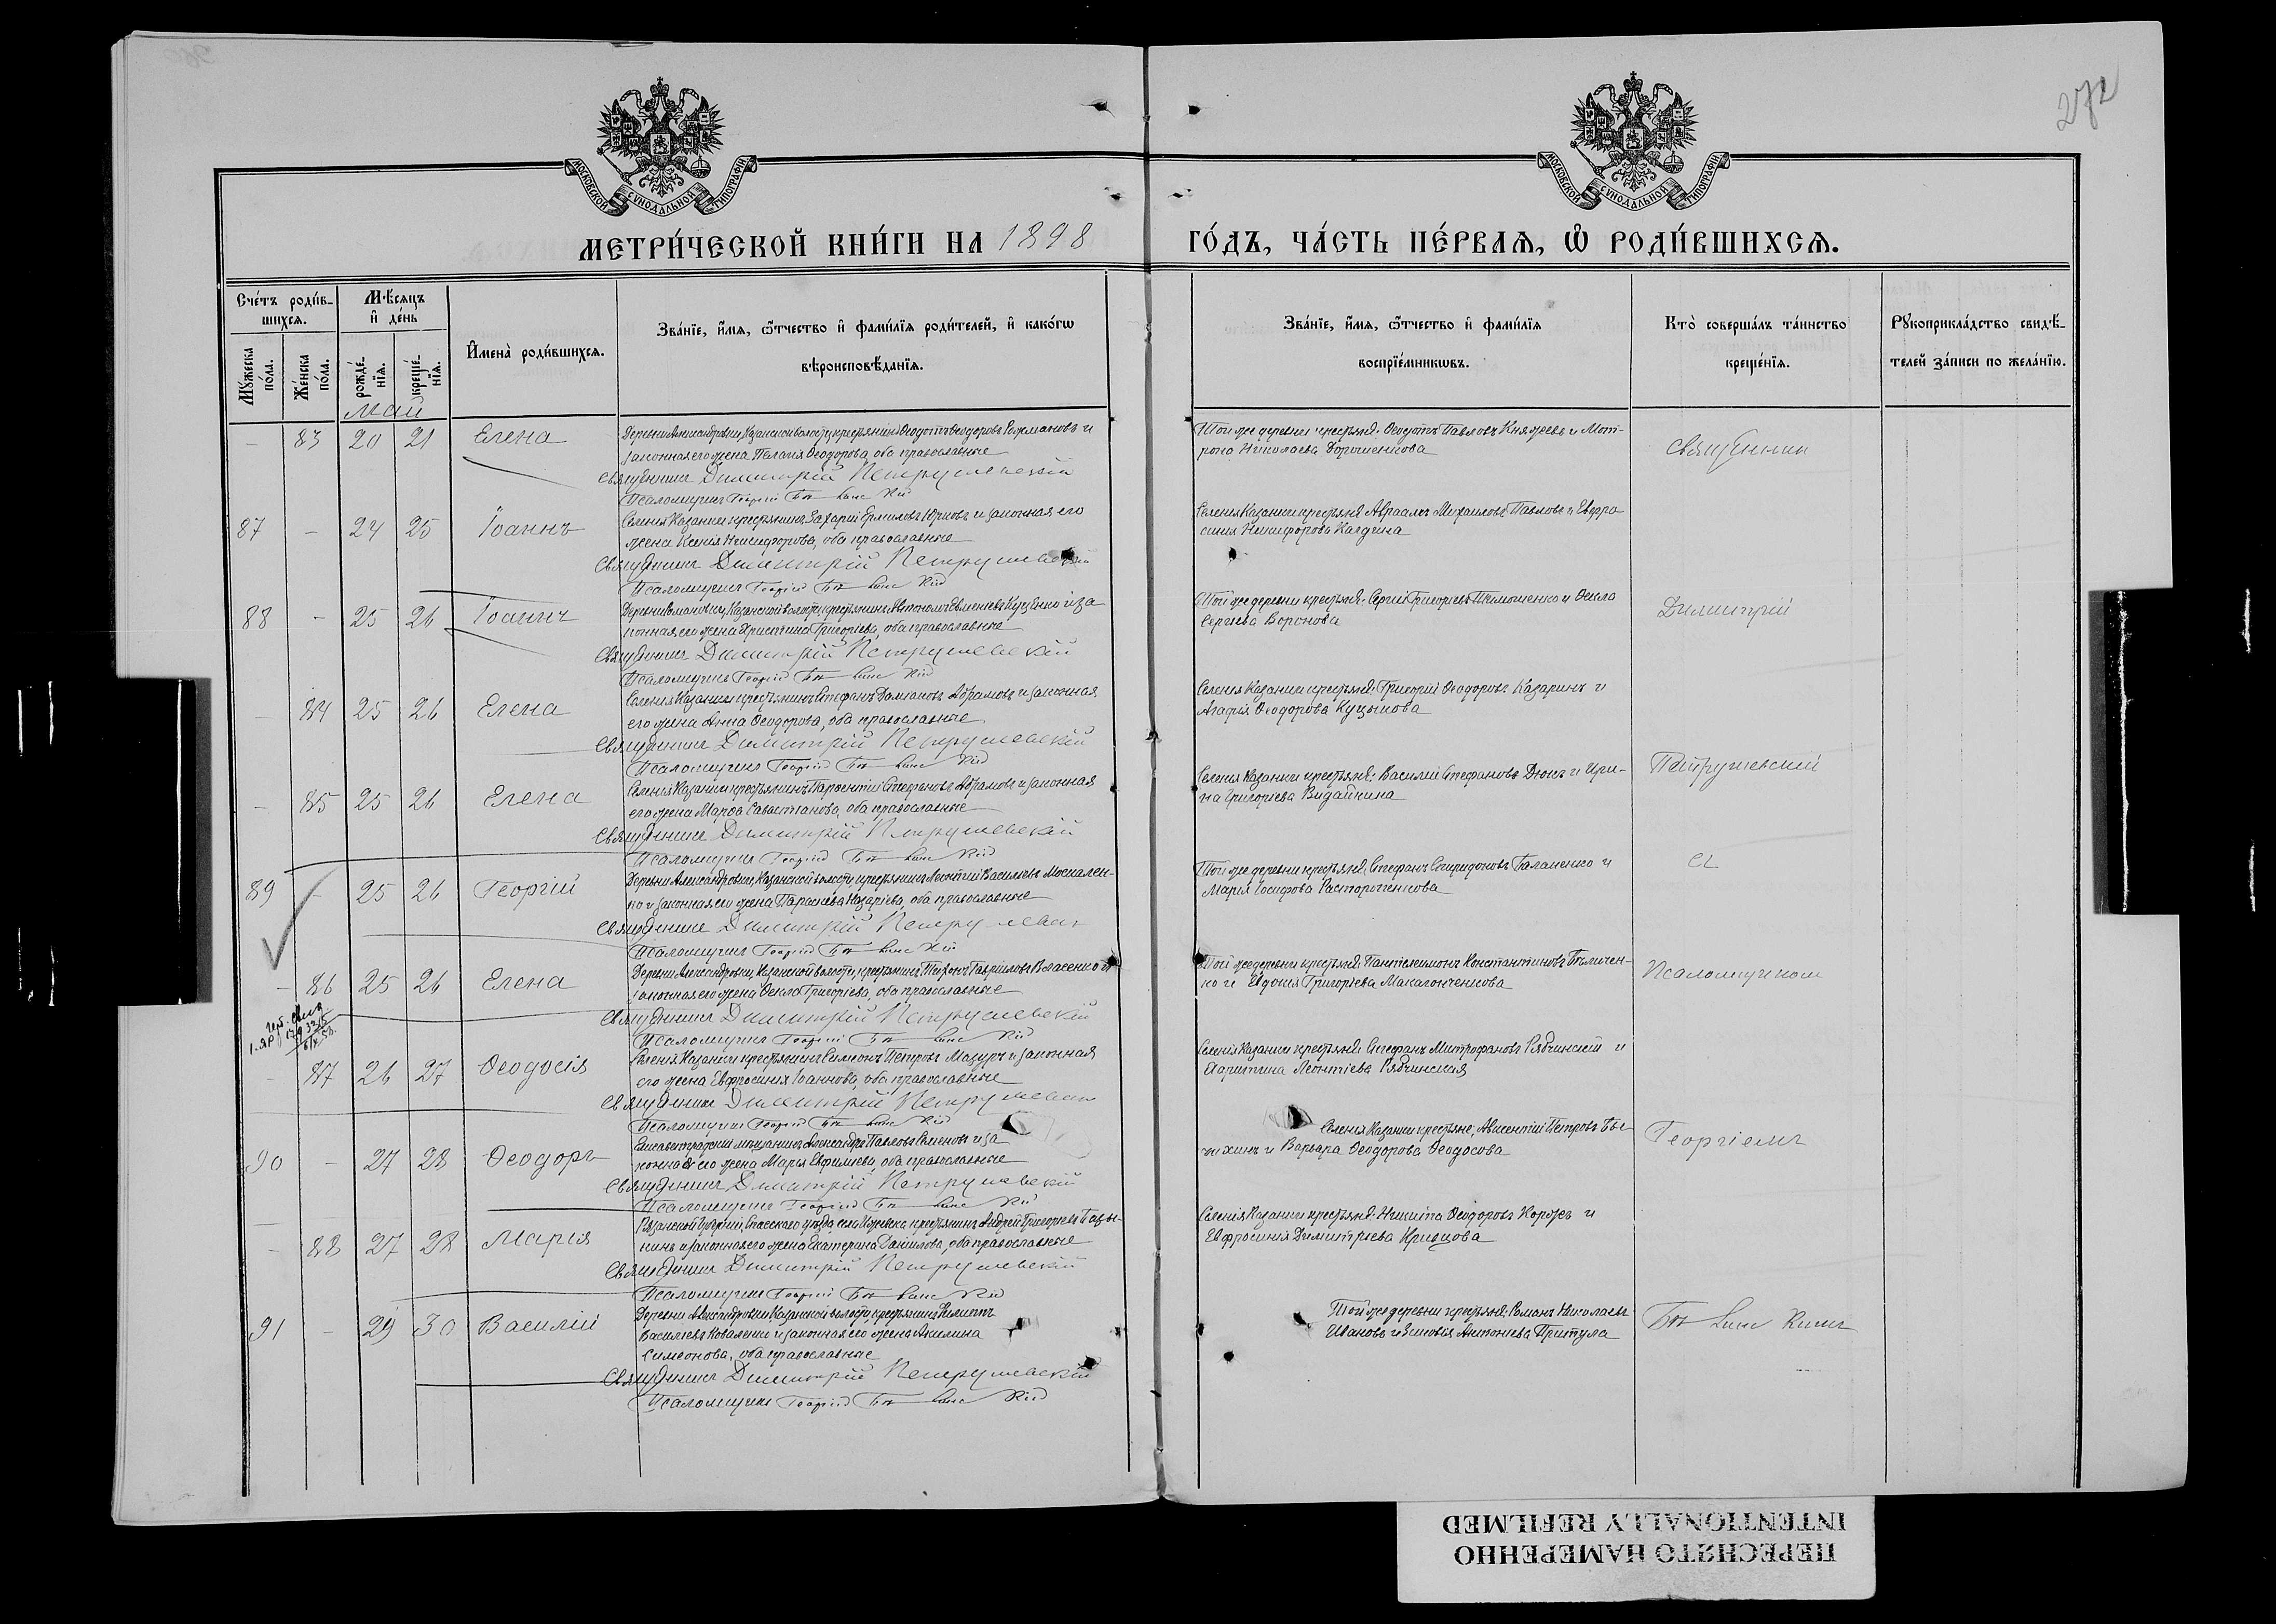 272
МОСКОВСКОЙ СУНОДАЛЬНОЙ ТИПОГРАФІИ
МОСКОВСКОЙ СУНОДАЛЬНОЙ ТИПОГРАФІИ
МЕТРИ́ЧЕСКОЙ КНИ́ГИ НА 1898
ГО́ДЪ, ЧА́СТЬ ПЕ́РВАѦ, Ѿ РОДИ́ВШИХСѦ.
Сче́тъ роди́в-
шихсѧ.
Мꙋ́жеска
по́ла.
Же́нска
по́ла.
Мѣ́сѧцъ
и҆ де́нь
рожде́-
нїѧ.
креще́-
нїѧ.
И҆мена̀ роди́вшихсѧ.
Зва́нїе, и҆́мѧ, ѻ҆́тчество и҆ фами́лїѧ роди́телей, и҆ како́гѡ
вѣроисповѣ́данїѧ.
Зва́нїе, и҆́мѧ, ѻ҆́тчество и҆ фами́лїѧ
воспрїе́мникѡвъ.
Кто̀ соверша́лъ та́инство
креще́нїѧ.
Рꙋкоприкла́дство свидѣ́-
телей за́писи по жела́нїю.
Май
– 83 20 21 Елена
законная его жена Пелагія Ѳеодорова, оба православные
Священникъ Димитрій Петрушевскій
Псаломщикъ Георгій
Той же деревни крестьяне: Ѳеодотъ Павловъ Княжевъ и Мот-
рона Николаева Дорошенкова
Священник
87 – 24 25 Іоаннъ
Селенія Казанки крестьянинъ Захарій Ермиловъ Юрковъ и законная его
жена Ксенія Никифорова, оба православные
Священникъ Димитрій Петрушевскій
Псаломщикъ Георгій
Селенія Казанки крестьяне Авраамъ Михаиловъ Павловъ и Евфро
синія Никифорова
88 – 25 26 Іоаннъ
конная его жена Христина Григоріева, оба православные
Священникъ Димитрій Петрушевскій
Псаломщикъ Георгій
Той же деревни крестьяне: Сергій Григорьевъ Тимошенко и Ѳекла
Сергіева Воронова
Димитрій
– 84 25 26 Елена
Селенія Казанки крестьянинъ Стефанъ Даміановъ Абрамовъ и законная
его жена Анна Ѳеодорова, оба православные
Священникъ Димитрій Петрушевскій
Псаломщикъ Георгій
Селенія Казанки крестьяне: Григорій Ѳеодоровъ Казаринъ и
Агафія Ѳеодорова Куцыкова
– 85 25 26 Елена
Селенія Казанки крестьянинъ Парѳентій Стефановъ Абрамовъ и законная
его жена Марѳа Савастіанова, оба православные
Священникъ Димитрій Петрушевскій
Псаломщикъ Георгій
Селенія Казанки крестьяне: Василій Стефановъ Дюкъ и Ири-
на Григорьева Видайкина
Петрушевскій
89 – 25 26 Георгій
Деревни Александровки, Казанской волости, крестьянинъ Леонтій Васильевъ Москален-
ко и законная его жена Параскева Назаріева, оба православные
Священникъ Димитрій
Псаломщикъ Георгій
Той же деревни крестьяне: Стефанъ Спиридоновъ Баланенко и
Марія Іосифова Расторгченкова
съ
– 86 25 26 Елена
Деревни Александровки, Казанской волости, крестьянинъ Тихонъ Гавріиловъ Власенко и
законная его жена Ѳекла Григоріева, оба православные
Священникъ Димитрій Петрушевскій
Псаломщикъ Георгій
Той же деревни крестьяне: Пантелеимонъ Константиновъ Величен-
ко и Евдокія Григоріева Макагонченкова
Псаломщикомъ
– 87 26 27 Ѳеодосія
Селенія Казанки крестьянинъ Симеонъ Петровъ Мазуръ и законная
его жена Евфросинія Іоаннова, оба православные
Священникъ Димитрій
Псаломщикъ Георгій
Селенія Казанки крестьяне: Стефанъ Митрофановъ Рябчинскій и
Харитина Леонтіева Рябчинская
90 – 27 28 Ѳеодоръ
Елисаветградскій мѣщанинъ Александръ Павловъ Семеновъ и за
конная его жена Марія Евфиміева, оба православные
Священникъ Димитрій Петрушевскій
Псаломщикъ Георгій
Селенія Казанки крестьяне: Авксентій Петровъ Бы-
чихинъ и Варвара Ѳеодорова Ѳеодосова
Георгіемъ
– 88 27 28 Марія
нинъ и законная его жена Екатерина Даніилова, оба православные
Священникъ Димитрій Петрушевскій
Псаломщикъ Георгій
Селенія Казанки крестьяне: Никита Ѳеодоровъ Коржевъ и
Евфросинія Димитріева Кривцова
91 – 29 30 Василій
Деревни Александровки Казанской волости, крестьянинъ Филиппъ
Василіевъ Коваленко и законная его жена Акилина
Симеонова, оба православные
Священникъ Димитрій Петрушевскій
Псаломщикъ Георгій
Той же деревни крестьяне: Романъ Николаевъ
Ивановъ и Зиновія Антоніева Притула
ПЕРЕСНЯТО НАМЕРЕННО
INTENTIONALLY REFILMED